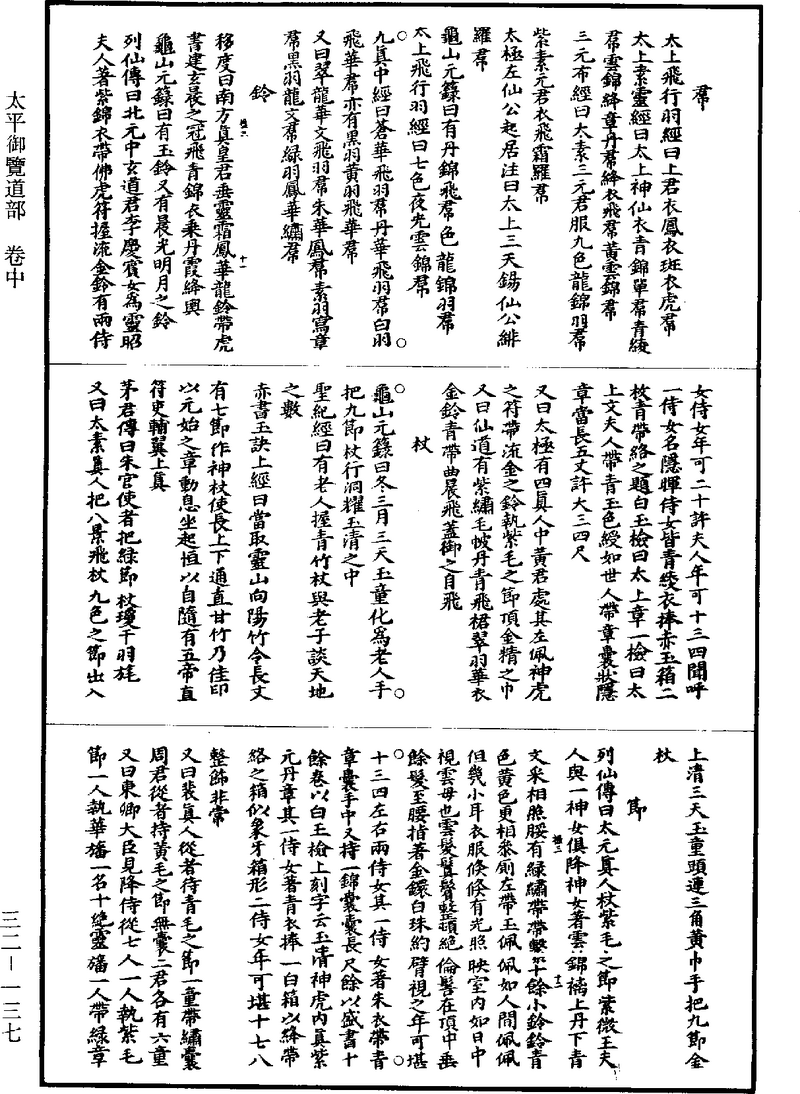 太平御覽道部　卷中
三二—一三七
羣
太上飛行羽經曰上君衣鳳衣斑衣虎羣
太上素靈經曰太上神仙衣青錦單羣青綾
羣雲錦絳章丹羣絳衣飛羣黃雲錦羣
三元布經曰太素三元君服九色龍錦羽羣
紫素元君衣飛霜羅羣
太極左仙公起居注曰太上三天錫仙公緋
羅羣
龜山元籙曰有丹錦飛羣色龍錦羽羣
太上飛行羽經曰七色夜光雲錦羣
九真中經曰蒼華飛羽羣丹華飛羽羣白羽
飛華羣亦有黑羽黃羽飛華羣
又曰翠龍華文飛羽羣朱華鳳羣素羽寫章
羣黑羽龍文羣綠羽鳳華繡羣
鈴
移度曰南方真皇君垂靈霜鳳華龍鈴帶虎
書建玄晨之冠飛青錦衣乘丹霞絳輿
龜山元籙曰有玉鈴又有晨光明月之鈴
列仙傳曰北元中玄道君李慶賓女為靈昭
夫人著紫錦衣帶佛虎符握流金鈴有兩侍
女侍女年可二十許夫人年可十三四聞呼
一侍女名隱暉侍女皆青綾衣捧赤玉箱二
枚青帶絡之題白玉檢曰太上章一檢曰太
上文夫人帶青玉色綬如世人帶章囊狀隱
章當長五丈許大三四尺
又曰太極有四真人中黃君處其左佩神虎
之符帶流金之鈴執紫毛之節頂金精之巾
又曰仙道有紫繡毛帔丹青飛裙翠羽華衣
金鈴青帶曲晨飛蓋御之自飛
杖
龜山元籙曰冬三月三天玉童化為老人手
把九節杖行洞耀玉清之中
聖紀經曰有老人握青竹杖與老子談天地
之數
赤書玉訣上經曰當取靈山向陽竹令長丈
有七節作神杖使長上下通直甘竹乃佳印
以元始之章動息坐起恒以自隨有五帝直
符吏輔翼上真
茅君傳曰朱官使者把綠節杖瓊干羽旄
又曰太素真人把八景飛杖九色之節出入
上清三天玉童頭連三角黃巾手把九節金
杖
節
列仙傳曰太元真人杖紫毛之節紫微王夫
人與一神女俱降神女著雲錦襡上丹下青
文采相照腰有綠繡帶帶繫十餘小鈴鈴青
色黃色更相參廁左帶玉佩佩如人間佩佩
但幾小耳衣服倏倏有光照映室內如日中
視雲母也雲髮鬒鬢整頓絕倫髻在項中垂
餘髮至腰指著金鐶白珠約臂視之年可堪
十三四左右兩侍女其一侍女著朱衣帶青
章囊手中又持一錦囊囊長尺餘以盛書十
餘卷以白玉檢上刻字云玉清神虎內真紫
元丹章其一侍女著青衣捧一白箱以絳帶
絡之箱似象牙箱形二侍女年可堪十七八
整飾非常
又曰裴真人從者持青毛之節一童帶繡囊
周君從者持黃毛之節無囊二君各有六童
又曰東卿大臣見降侍從七人一人執紫毛
節一人執華旛一名十絕靈旛一人帶綠章